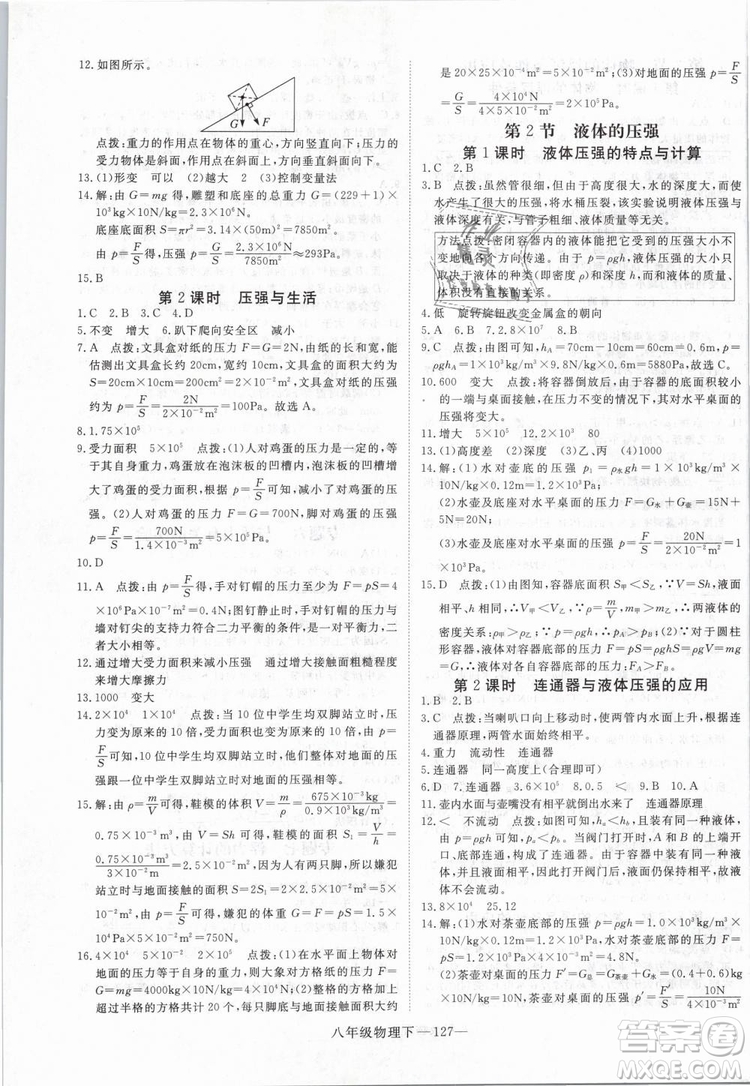 12.如图所示。
G F
点拨:重力的作用点在物体的重心,方向竖直向下;压力的
受力物体是斜面,作用点在斜面上,方向垂直斜面向下。
13.(1)形变 可以 (2)越大 2 (3)控制变量法
14.解:由G=mg可得,雕塑和底座的总重力G=(229+1)
×10³kg×10N/kg=2.3×10⁶N。
底座底座面积S=πr²=3.14×(50m)²=7850m²
由p=F/S可得,对水平地面的压强p=F/S=G/S=2.3×10⁶N/7850m²≈293Pa。
15.B
第2课时 压强与生活
1.C 2.B 3.C 4.D
5.不变 增大 6.趴下爬向安全区 减小
7.A 点拨:文具盒对纸的压力F=G=2N,由纸的长和宽,能
估测出文具盒长约20cm,宽约10cm,文具盒的面积大约为
S=20cm×10cm=200cm²=2×10⁻²m²,文具盒对纸的压强
约为p=F/S=2N/2×10⁻²m²=100Pa。故选A。
8.1.75×10⁵
9.受力面积 5×10⁵ 点拨:(1)人对鸡蛋的压力不变,等于
其自身重力,鸡蛋放在泡沫板的凹槽内,泡沫板的凹槽能
增大鸡蛋的受力面积,减小了对鸡蛋的压强,所以鸡蛋不
易碎。(2)人对鸡蛋的压力F=G=700N,对鸡蛋的压强
p=F/S=700N/1.4×10⁻³m²=5×10⁵Pa。
10.D
11.A 点拨:由p=F/S可得,手对钉帽的压力至少为F=pS=4
×10⁶Pa×10⁻⁷m²=0.4N;图钉静止时,手对钉帽的压力与
墙对钉尖的支持力符合二力平衡的条件,是一对平衡力,
二者大小相等。
12.通过增大受力面积来减小压强 通过增大接触面粗糙程度
来增大摩擦力
13.1000 变大
14.2×10⁴ 1×10⁴ 点拨:当10位中学生均双脚站立时,压
力变为原来的10倍,受力面积也变为原来的10倍,由p=
F/S可得,压强不变,即10位中学生均双脚站立对地面的压
强跟一位中学生双脚站立时对地面的压强相等。
15.解:由ρ=m/V可得,鞋模的体积V=m/ρ=675×10⁻³kg/0.9×10³kg/m³=
0.75×10⁻³m³,由V=Sh可得,鞋模的面积S₁=V/h=
0.75×10⁻³m³/3×10⁻²m=2.5×10⁻²m²,因人有两只脚,则嫌犯双脚
站立时与地面的接触面积S=2S₁=2×2.5×10⁻²m²=5×
10⁻²m²,由p=F/S可得,嫌犯的体重G=F=pS=1.5×
10⁴Pa×5×10⁻²m²=750N。
16.4×10⁴ 4×10⁴ 点拨:(1)在水平面上物体对
地面的压力等于自身的重力,则大象对方格纸的压力F=G
=mg=4×10³kg×10N/kg=4×10⁴N;(2)计算象脚面积时,
超过半格的方格约有20个,每只脚与地面的接触面积约
是20×25×10⁻⁴m²=5×10⁻²m²;(3)对地面的压强p=F/S
=G/S=4×10⁴N/4×5×10⁻²m²=2×10⁵Pa。
第2节 液体的压强
第1课时 液体压强的特点与计算
1.C 2.B
3.B 点拨:虽然管很细,但由于高度很大,水的深度大,而使
水产生了很大的压强,将水桶压裂,该实验说明液体压强与
液体深度有关,与管子粗细、液体大小、质量无关。
方法点拨:密闭容器内的液体能把它受到的压强大小不
变地向各个方向传递。由此可知,液体的压强大小只
取决于液体的种类(即密度)和深度,而和液体的质量、
体积没有直接的关系。
4.低 旋转旋钮改变金属盒的朝向
5.A 6.B 7.2.8×10⁷ 8.B
9.C 点拨:由图可知,hA=70cm-10cm=60cm=0.6m,p=
ρgh=1×10³kg/m³×9.8N/kg×0.6m=5880Pa,故选C。
10.600 变大 点拨:将容器倒放后,由于容器的底面积较小
的一端与桌面接触,在压力不变的情况下,其对水平桌面的
压强将变大。
11.增大 5×10⁵ 12.2×10³ 80
13.(1)高度差 (2)深度 (3)乙、丙 (4)1000
14.解:(1)水对壶底的压强p₁=ρgh=1×10³kg/m³
×10N/kg×0.12m=1.2×10³Pa。
(2)水壶及底座对水平桌面的压力F=G水+G壶=15N+
5N=20N。
(3)水壶及底座对水平桌面的压强p₂=F/S=20N/2×10⁻²m²=
1×10³Pa。
15.D 点拨:由图知,容器底面积S甲<S乙,∵V=Sh,液面
相平,∴V甲<V乙,∵ρ=m/V,且两容器中液体质量相等,
∴ρ甲>ρ乙,∵p=ρgh,∴pA>pB;又由于对于圆柱
形容器,底部所受的压力F=pS=ρghS=ρgV=mg,质量相
同,∴F甲=F乙。
第2课时 连通器与液体压强的应用
1.B 2.B
3.C 点拨:当喇叭口向上移动时,使两管内水面上升,根据
连通器原理,两管水面始终相平。
4.重力 流动性 连通器
5.连通器 同一高度上(合理即可)
6.D 7.连通器 1.36×10⁵ 8.< < 9.B 10.A
11.壶内水面与壶嘴没有相平就倒出水来了 连通器原理
12.< 不流动 点拨:如图可知,ha<hb,由于装有同一种液体,
由p=ρgh知,pa<pb;当阀门打开时,A和B的上方都开
口、底部连通,故构成了连通器,并且装有同一种液体,液面
相平,因此打开阀门后,液面仍然保持相平,故水不流动。
13.6×10³ 25.12
14.解:(1)水对茶壶底部的压强p=ρ水gh=1.0×10³kg/m³
×10N/kg×0.12m=1.2×10³Pa,水对茶壶底部的压力F
=pS=1.2×10³Pa×4×10⁻³m²=4.8N。
(2)茶壶对桌面的压力F′=G总=G茶壶+G水=(0.4+0.6)kg×
10N/kg=10N,茶壶对桌面的压强p′=F′/S=10N/4×10⁻³m²=
八年级物理下—127—
作业精灵
答案圈